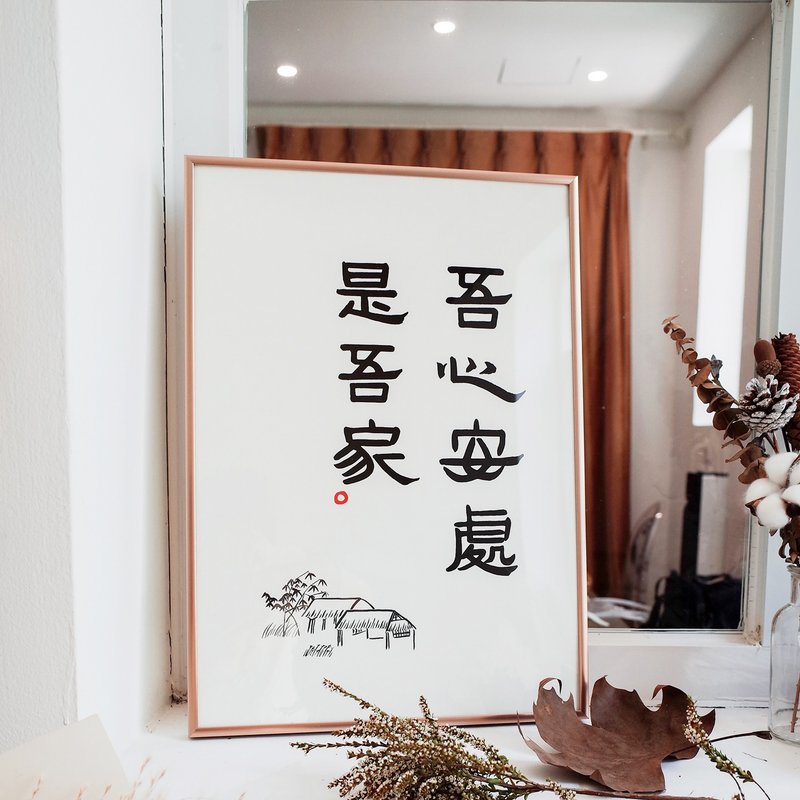 吾心安處
是吾家。